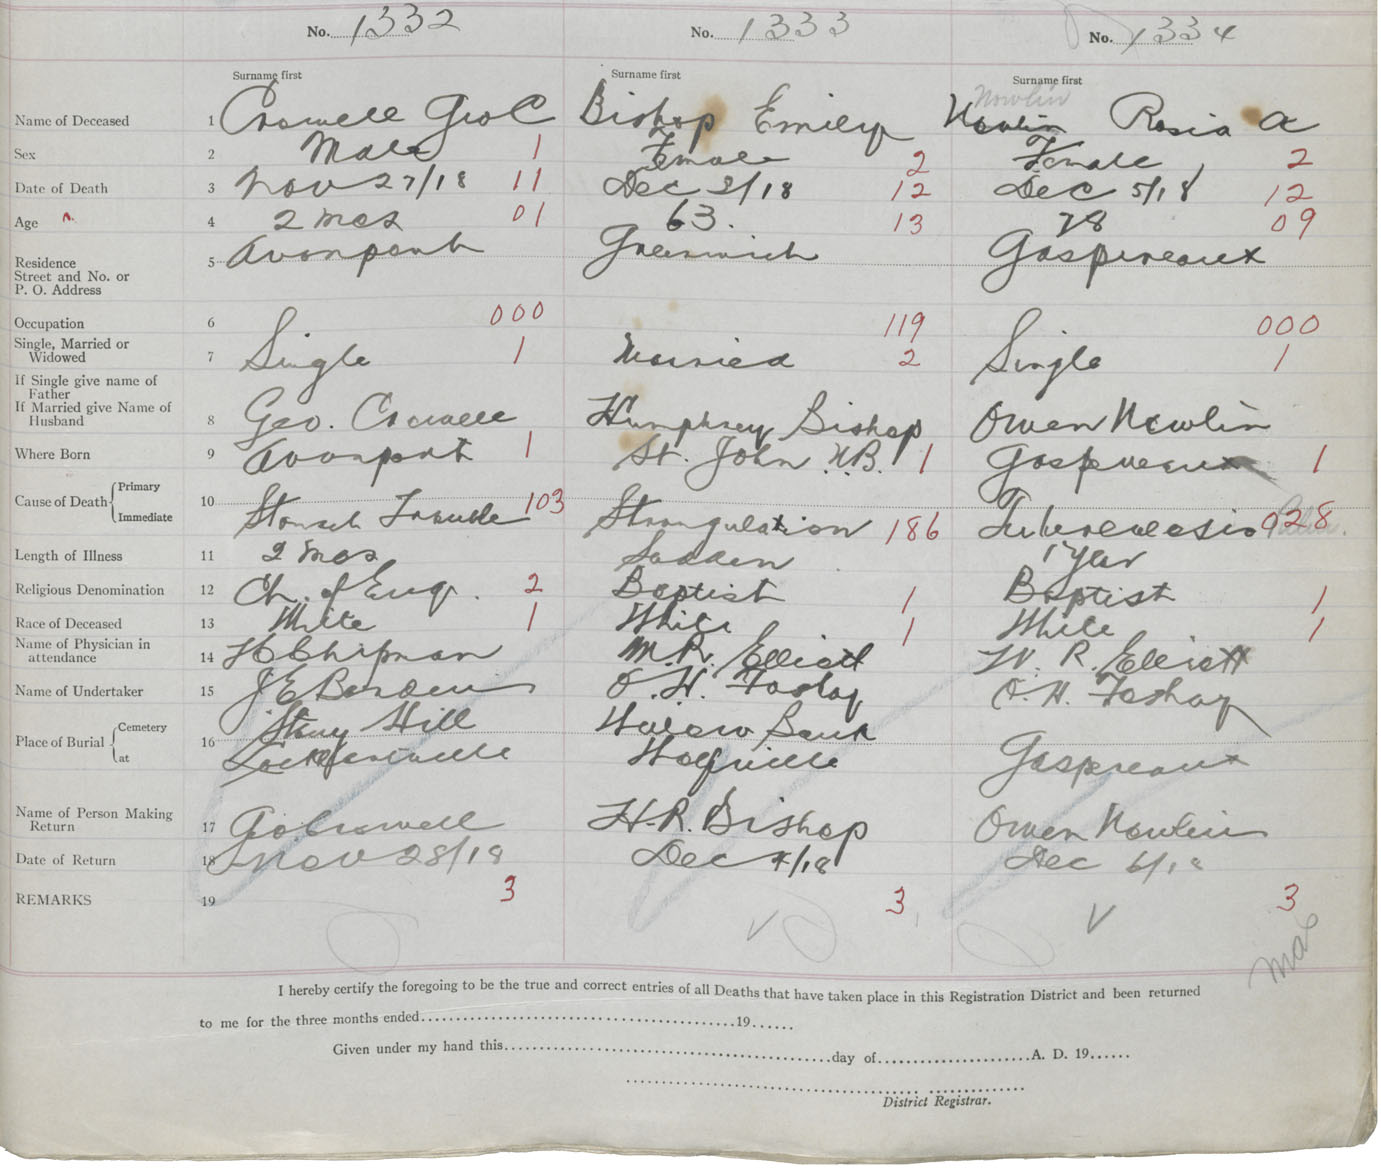 No. 1332 No. 1333 No. 1334
Surname first Surname first Surname first
Nowlin
Name of Deceased 1 Crowell Geo C Bishop Emily Nowlin Rosia A
Sex 2 Male 1 Female 2 Female 2
Date of Death 3 Nov 27/18 11 Dec 3/18 12 Dec 5/18 12
Age 4 2 mos 01 63. 13 28 09
Residence 5 Avonport Greenwich Gaspereaux
Street and No. or
P. O. Address
Occupation 6 000 119 000
Single, Married or
Widowed 7 Single 1 Married 2 Single 1
If Single give name of
Father
If Married give Name of
Husband 8 Geo. Crowell Humphrey Bishop Owen Nowlin
Where Born 9 Avonport 1 St. John N.B. 1 Gaspereaux 1
Cause of Death { Primary 10
Immediate Stomach Trouble 103 Strangulation 186 Tuberculosis 028
Length of Illness 11 2 mos Sudden 1 year
Religious Denomination 12 Ch. of Eng. 2 Baptist 1 Baptist 1
Race of Deceased 13 White 1 White 1 White 1
Name of Physician in
attendance 14 H Chipman M. R. Elliott W. R. Elliott
Name of Undertaker 15 J E Borden O. H. Foshay O. H. Foshay
Place of Burial { Cemetery 16 Stony Hill Willow Bank
at Lockhartville Wolfville Gaspereaux
Name of Person Making
Return 17 Geo Crowell H. R. Bishop Owen Nowlin
Date of Return 18 Nov 28/18 Dec 4/18 Dec 6/18
REMARKS 19 3 3 3
I hereby certify the foregoing to be the true and correct entries of all Deaths that have taken place in this Registration District and been returned
to me for the three months ended.......................................19......
Given under my hand this.......................................day of......................A. D. 19......
District Registrar.